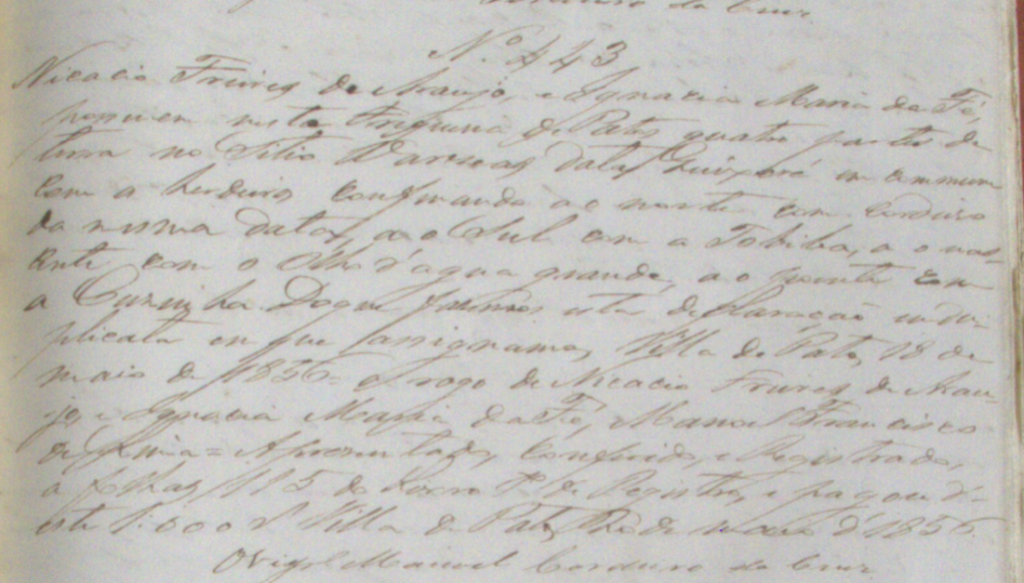 Cordeiro da Cruz
Nº 443
Nicacio Freires de Araujo, e Ignacia Maria da Fé,
possuem nesta Freguezia de Patos quatro partes de
terra no Sitio Varzeas, data em commum
com a herdeiros confinando ao norte com Cordeiro
da mesma data, ao Sul com a Tobiba, a o nas-
cente com o Olho d'agua grande, ao poente com
a Cuzinha Do que fazemos esta declaração em du-
plicata em que assignamos, Villa de Patos, 18 de
maio de 1856 = A rogo de Nicacio Freires de Arau-
jo, e Ignacia Maria da Fé, Manoel Francisco
de = Apresentado, Conferido, e Registrado,
a folhas 115 do Livro 1º de Registro, e pagou d'-
este 1:000 Villa de Patos de maio d'1856.
O Vigrº Manoel Cordeiro da Cruz